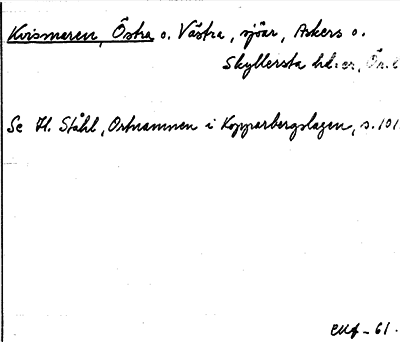 Kvismaren, Östra o. Västra, sjöar, Askers o.
Skyllersta hdver, Ör. l
Se H. Ståhl, Ortnamnen i Kopparbergslagen, s. 101.
-61.